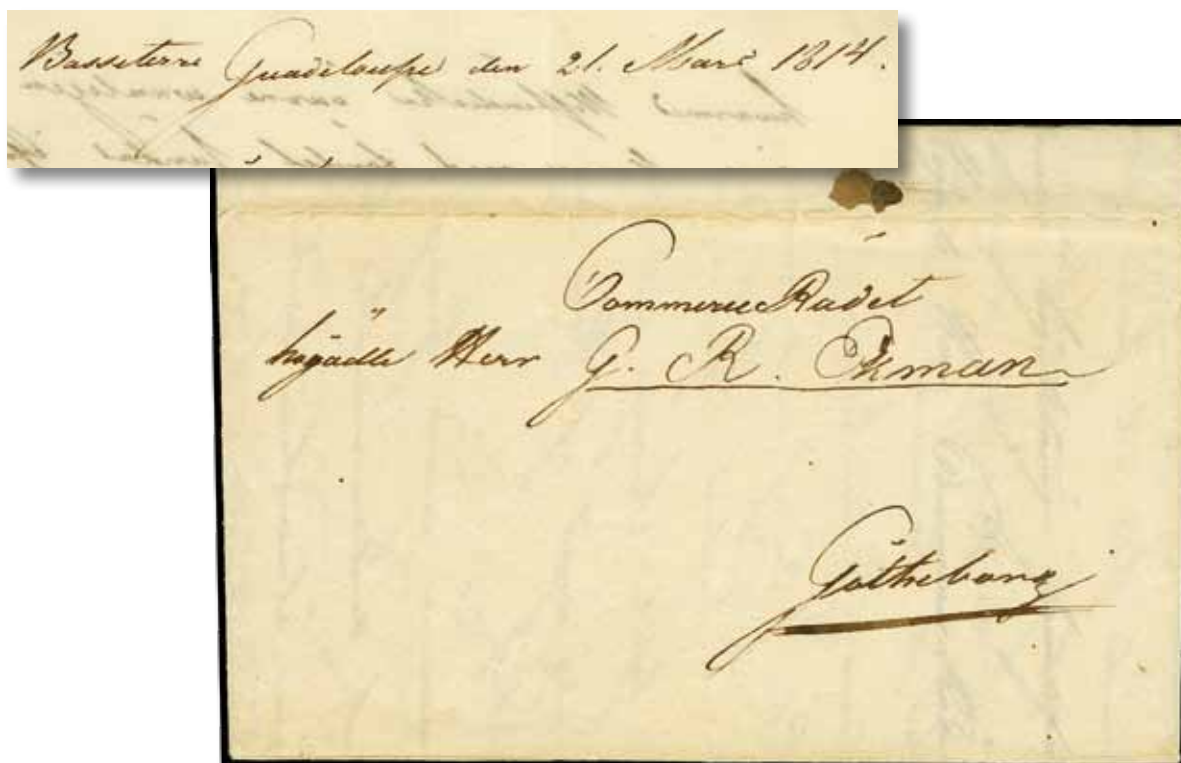 Basseterre Guadeloupe den 21. Mars 1814.
CommerceRådet
högädle Herr G. R. Ekman
Götheborg